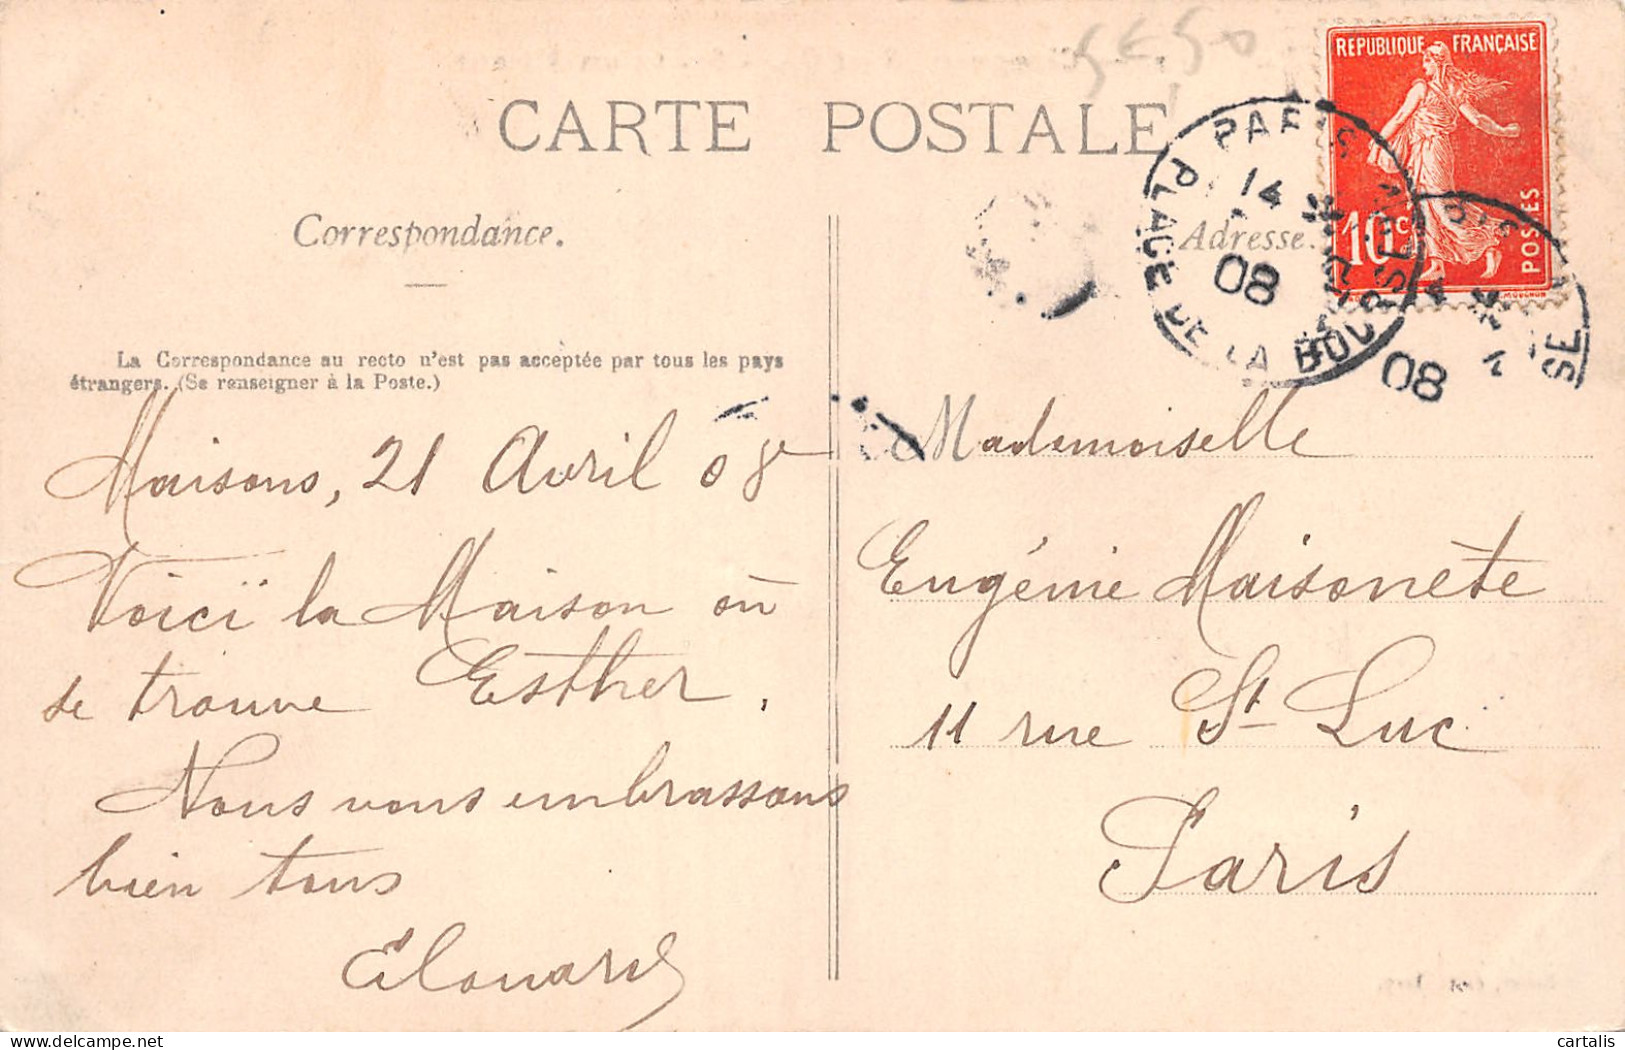 5€50
CARTE POSTALE
REPUBLIQUE FRANÇAISE
10 c
POSTES
PARIS
14
08
PLACE DE LA BOURSE
08
SE
Correspondance.
Adresse.
La Correspondance au recto n'est pas acceptée par tous les pays
étrangers. (Se renseigner à la Poste.)
Maisons, 21 Avril 08
Voicï la Maison où
se trouve Esther.
Nous vous embrassons
bien tous
Edouard
Mademoiselle
Eugénie Maisonète
11 rue St Luc
Paris
cartalis
delcampe.net